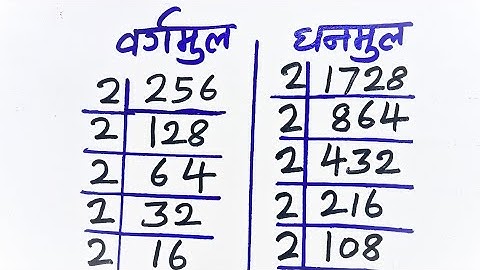 वर्गमुल
2 256
2 128
2 64
2 32
2 16
घनमुल
2 1728
2 864
2 432
2 216
2 108